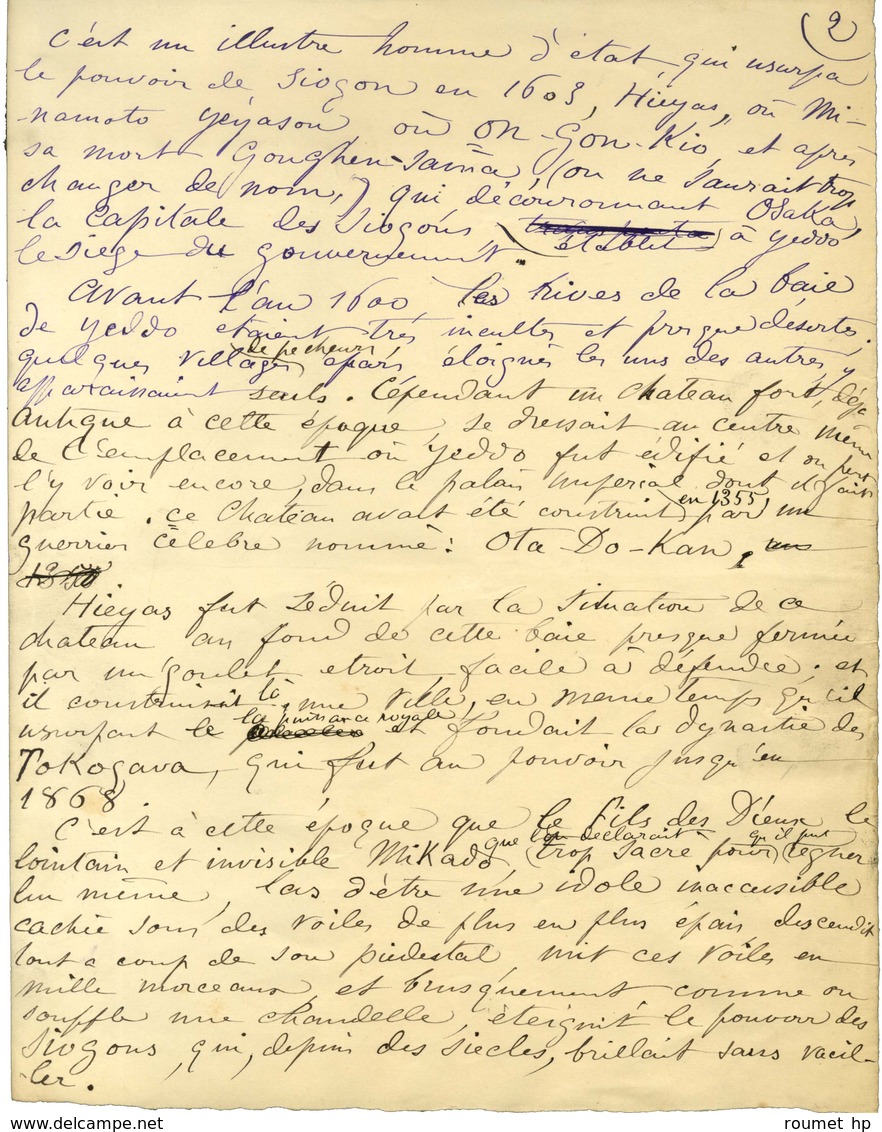 (2
C'est un illustre homme d'état qui usurpa
le pouvoir de Siogon en 1603, Hiéyas, ou Mi-
namoto Yéyasou, ou On-Gon-Kio, et après
sa mort Gonghen-Sama, (on ne saurait trop
changer de nom,) qui découronnant Osaka,
la Capitale des Siogons établit à Yeddo
le siège du gouvernement.
Avant l'an 1600, les rives de la baie
de Yeddo étaient très incultes et presque désertes.
quelques villages de pêcheurs épars, éloignés les uns des autres, y
apparaissaient seuls. Cépendant un chateau fort, déja
antique à cette époque, se dressait au centre même
de l'emplacement où Yeddo fut édifié et on peut
l'y voir encore, dans le palais impérial dont il fait
partie. ce chateau avait été construit en 1355, par un
guerrier célèbre nommé: Ota-Do-Kan,
1350.
Hiéyas fut séduit par la situation de ce
chateau au fond de cette baie presque fermée
par un goulet etroit, facile à défendre. et
il construisit là, une ville, en meme temps qu'il
usurpait le la puissance royale et fondait la dynastie des
Tokogava, qui fut au pouvoir jusqu'en
1868.
C'est à cette époque que le Fils des Dieux le
lointain et invisible Mikado que l'on déclarait trop sacré pour qu'il put régner
lui même, las d'être une idole inaccessible
cachée sous des voiles de plus en plus épais descendit
tout a coup de son piedestal mit ces voiles en
mille morceaux et brusquement comme on
souffle une chandelle, éteignit le pouvoir des
Siogons, qui, depuis des siecles, brillait sans vacil-
ler.
roumet hp